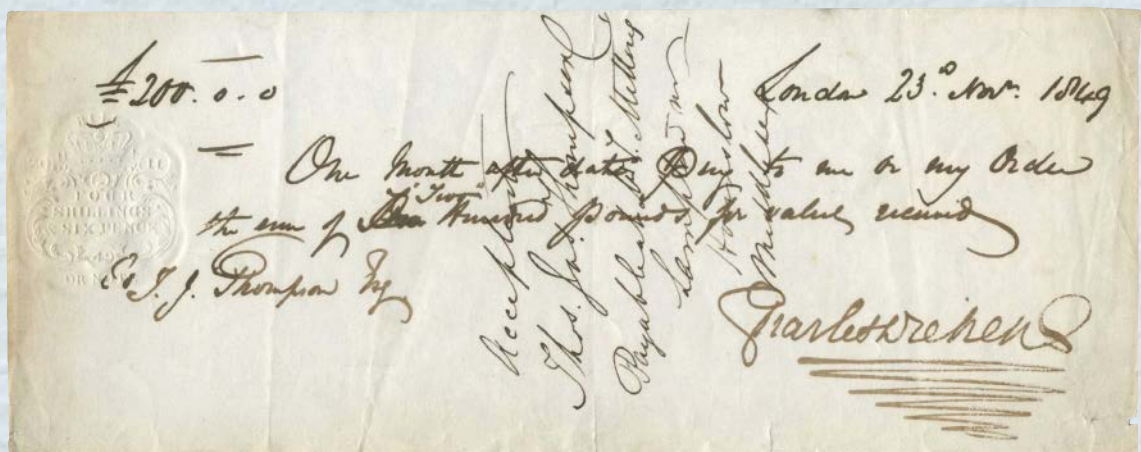 £200. 0. 0
London 23.d Novr. 1849
One Month after date Pay to me or my Order
the sum of Two Hundred pounds for value received
To T. J. Thompson Esq
Charles Dickens
Accepted
Thos. Jas. Thompson
Payable at
Hounslow
Middlesex
FOUR
SHILLINGS
& SIX PENCE